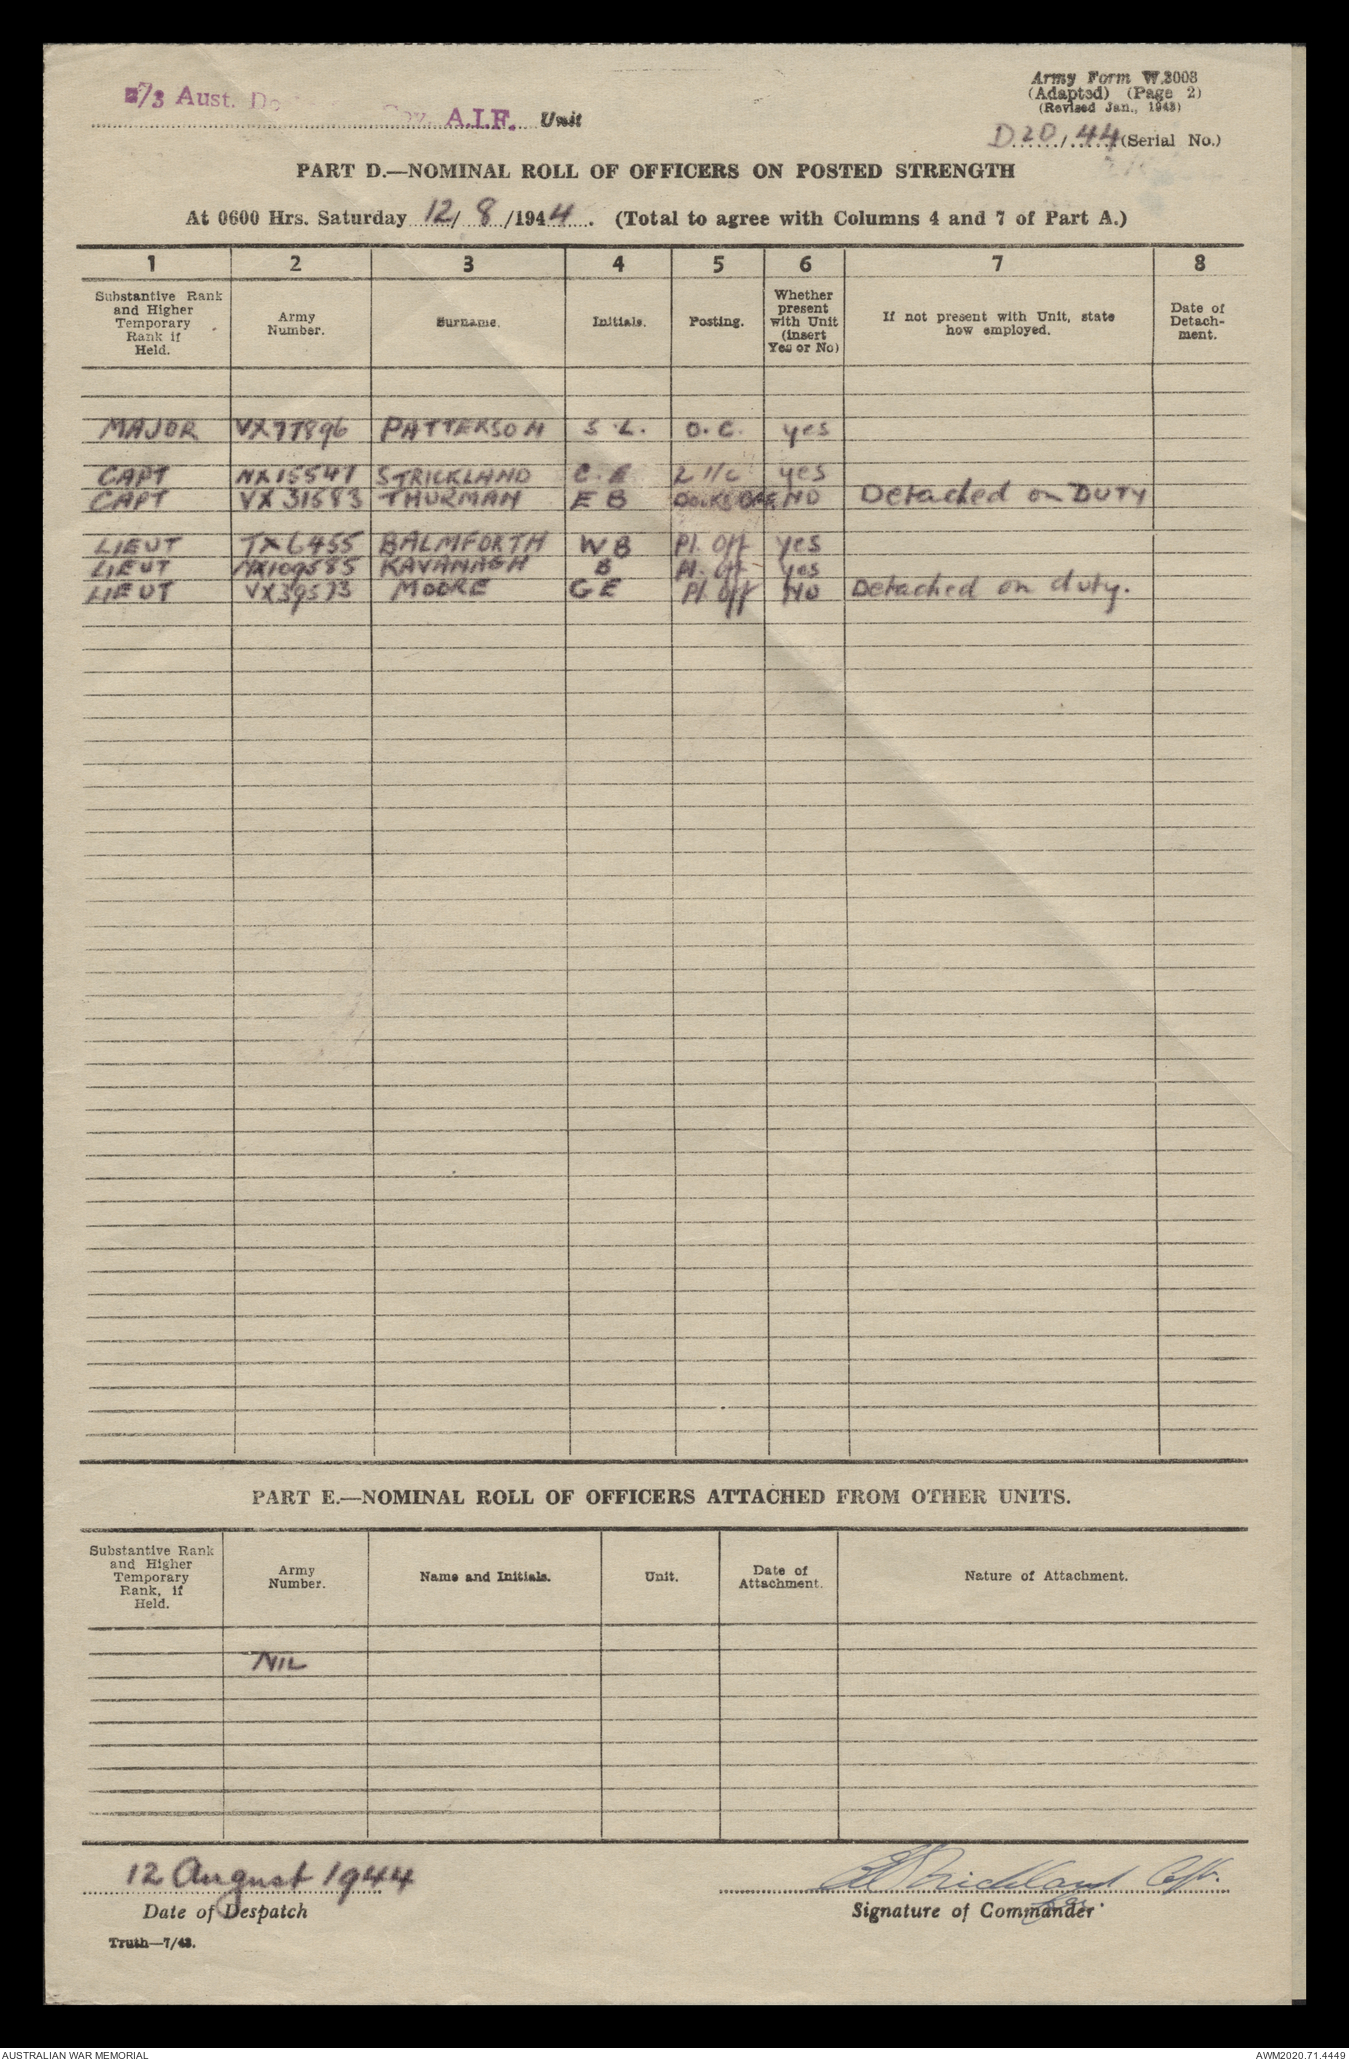 2/3 Aust. Do Coy. A.I.F. Unit
Army Form W.3008
(Adapted) (Page 2)
(Revised Jan., 1943)
D20/44 (Serial No.)
PART D.—NOMINAL ROLL OF OFFICERS ON POSTED STRENGTH
At 0600 Hrs. Saturday 12/8/1944. (Total to agree with Columns 4 and 7 of Part A.)
1 2 3 4 5 6 7 8
Substantive Rank and Higher Temporary Rank if Held. Army Number. Surname. Initials. Posting. Whether present with Unit (insert Yes or No) If not present with Unit, state how employed. Date of Detach-ment.
MAJOR VX77896 PATTERSON S.L. O.C. yes
CAPT NX15547 STRICKLAND C.E 2 I/C yes
CAPT VX31583 THURMAN E B NO Detached on DUTY
LIEUT TX6455 BALMFORTH W B Pl. Off yes
LIEUT NX109585 KAVANAGH B Pl. Off yes
LIEUT VX39573 MOORE G E Pl. Off NO Detached on duty.
PART E.—NOMINAL ROLL OF OFFICERS ATTACHED FROM OTHER UNITS.
Substantive Rank and Higher Temporary Rank, if Held. Army Number. Name and Initials. Unit. Date of Attachment. Nature of Attachment.
NIL
12 August 1944
Date of Despatch
Strickland Capt.
Signature of Commander
Truth—7/43.
AUSTRALIAN WAR MEMORIAL
AWM2020.71.4449